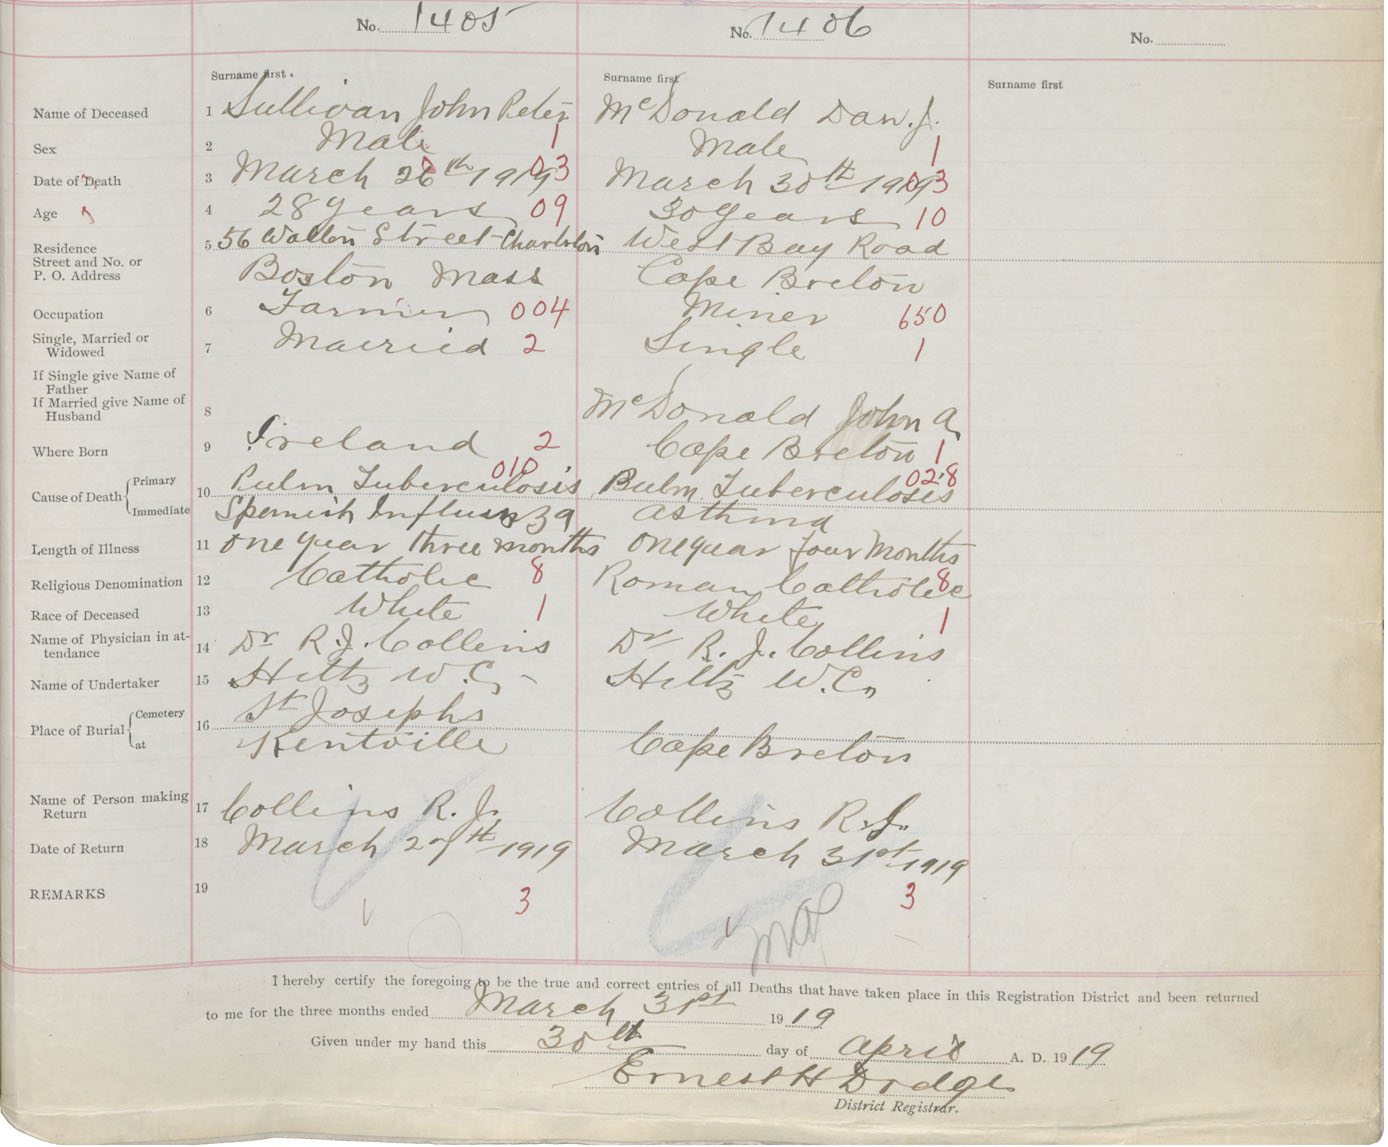 No. 1405 No. 1406 No.
Surname first. Surname first Surname first
Name of Deceased 1 Sullivan John Peter McDonald Dan. J.
Sex 2 Male 1 Male 1
Date of Death 3 March 26th 1919 03 March 30th 1919 03
Age 4 28 years 09 30 years 10
Residence 5 56 Walton Street Charleston West Bay Road
Street and No. or
P. O. Address Boston Mass Cape Breton
Occupation 6 Farmer 004 Miner 650
Single, Married or
Widowed 7 Married 2 Single 1
If Single give Name of
Father
If Married give Name of
Husband 8 McDonald John A
Where Born 9 Ireland 2 Cape Breton 1
010 028
Cause of Death Primary 10 Pulm Tuberculosis Pulm Tuberculosis
Immediate Spanish Influenza Asthma
Length of Illness 11 One year three months One year four months
Religious Denomination 12 Catholic 8 Roman Catholic 8
Race of Deceased 13 White 1 White 1
Name of Physician in at-
tendance 14 Dr R. J. Collins Dr R. J. Collins
Name of Undertaker 15 Hiltz W. C. Hiltz W. C.
Place of Burial Cemetery 16 St Josephs
at Kentville Cape Breton
Name of Person making
Return 17 Collins R. J. Collins R. J.
Date of Return 18 March 27th 1919 March 31st 1919
REMARKS 19 3 3
I hereby certify the foregoing to be the true and correct entries of all Deaths that have taken place in this Registration District and been returned
to me for the three months ended March 31st 1919
Given under my hand this 30th day of April A. D. 1919
Ernest H Dodge
District Registrar.